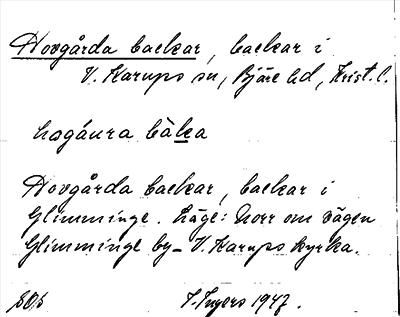 Hovgårda backar, backar i
V. Karups sn, Bjäre hd, Krist. l.
hogáura bàka
Hovgårda backar, backar i
Glimminge. Läge: Norr om vägen
Glimminge by - V. Karups kyrka.
I. Ingers 1947.